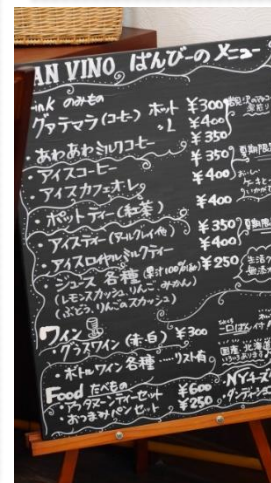 AN VINO ぱんびーの メニュー
ink のみもの
グァテマラ(コーヒー) ホット ¥300
〃 L ¥400
・あわあわミルクコーヒー ¥350
・アイスコーヒー ¥350
・アイスカフェオ・レ ¥400
・ポットティー(紅茶) ¥400
・アイスティー(アールグレイ他) ¥350
・アイスロイヤルミルクティー ¥400
・ジュース 各種(果汁100%他) ¥250
(レモンスカッシュ、りんご、みかん)
(ぶどう、りんごのスカッシュ)
ワイン
・グラスワイン(赤・白) ¥300
・ボトルワイン各種 ……リスト有
Food たべもの
・アフタヌーンティーセット ¥600
・おつまみパンセット ¥250